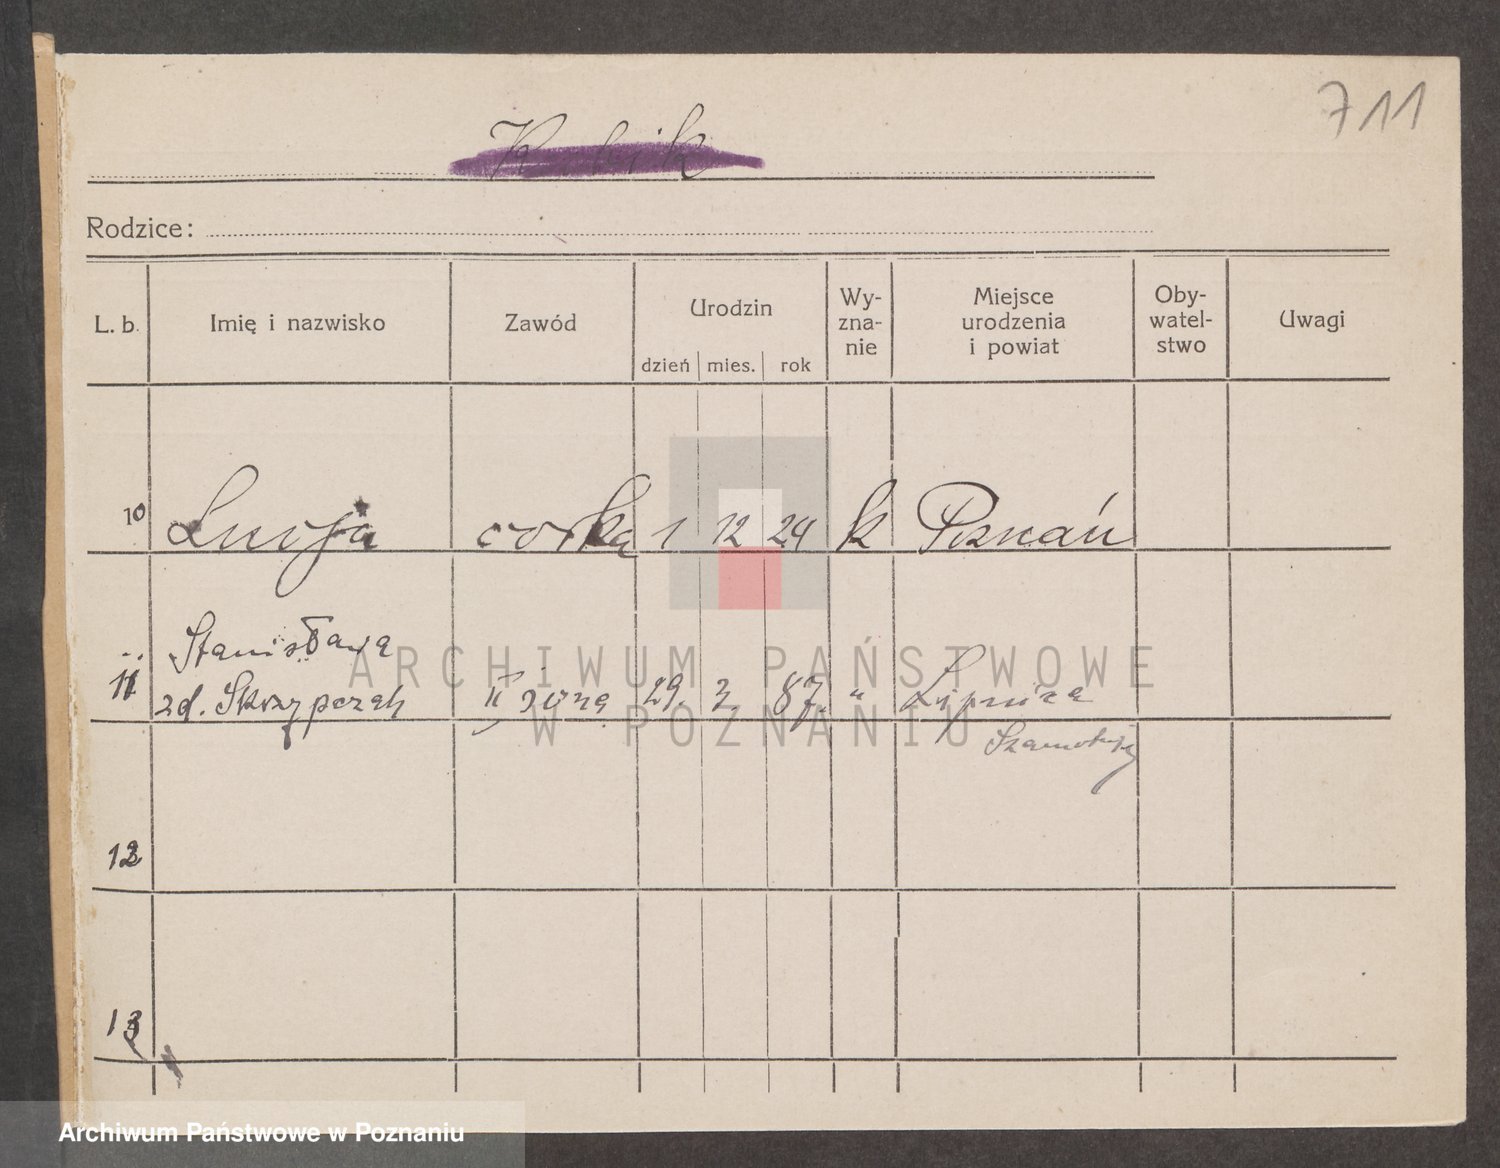 711
Kubik
Rodzice:
L. b.
Imię i nazwisko
Zawód
Urodzin
dzień mies. rok
Wy-
zna-
nie
Miejsce
urodzenia
i powiat
Oby-
watel-
stwo
Uwagi
10 Lucja corka 1 12 24 k Poznań
Stanisława
11 zd. Skrzypczak II żona 29. 3 87. " Lipnica
Szamotuły
12
13
ARCHIWUM PAŃSTWOWE
W POZNANIU
Archiwum Państwowe w Poznaniu